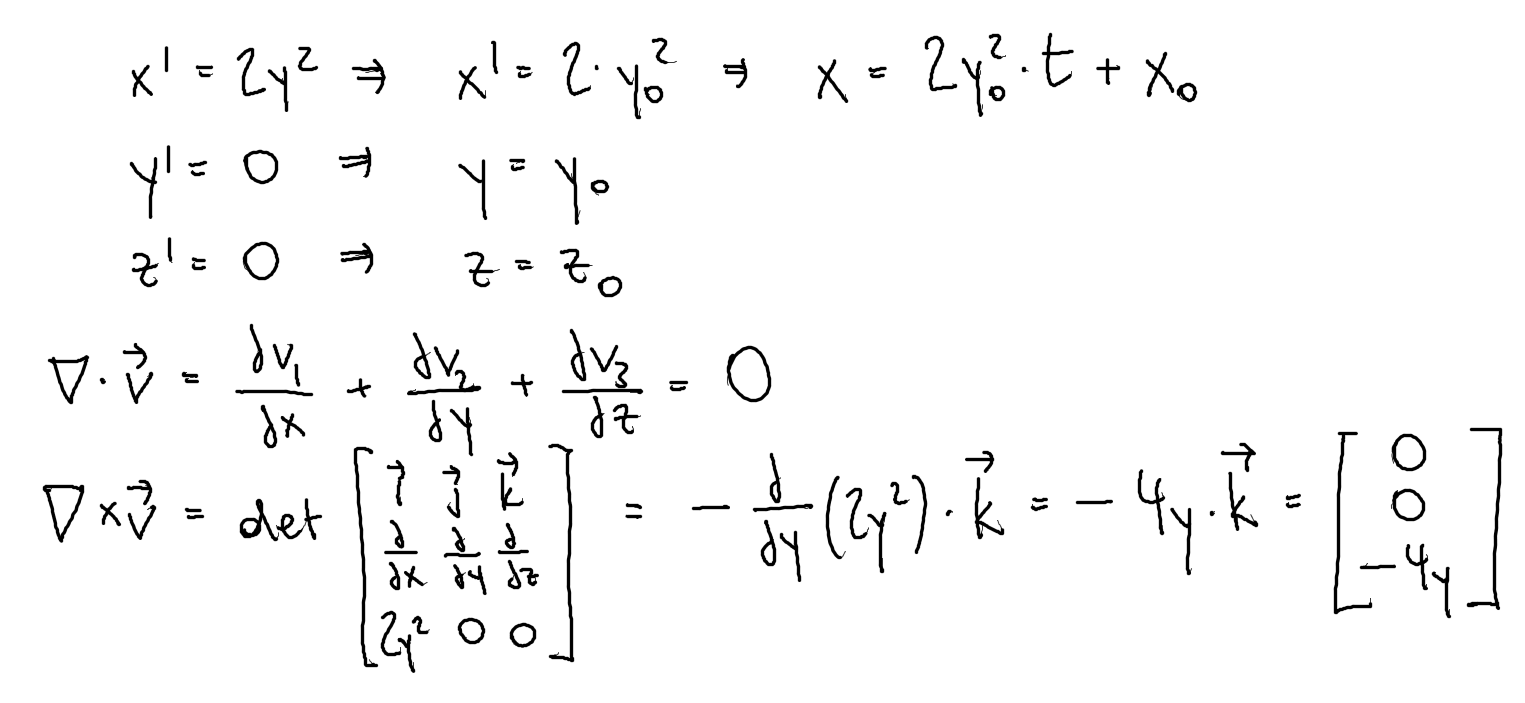 x' = 2y² ⇒ x' = 2·y₀² ⇒ x = 2y₀²·t + x₀
y' = 0 ⇒ y = y₀
z' = 0 ⇒ z = z₀
∇·v⃗ = ∂v₁/∂x + ∂v₂/∂y + ∂v₃/∂z = 0
∇×v⃗ = det [i⃗ j⃗ k⃗; ∂/∂x ∂/∂y ∂/∂z; 2y² 0 0] = −∂/∂y (2y²)·k⃗ = −4y·k⃗ = [0; 0; −4y]